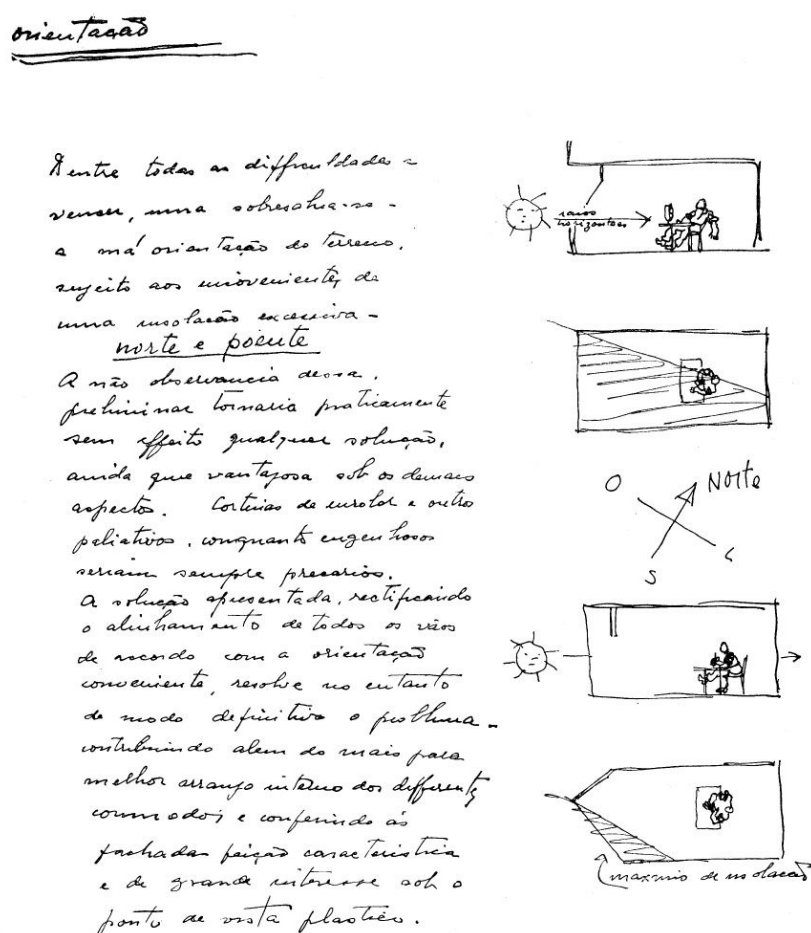 orientação
Dentre todas as difficuldades a
vencer, uma sobresahia-se -
a má orientação do terreno,
sujeito aos inconvenientes de
uma insolação excessiva -
norte e poente
A não observancia dessa
preliminar tornaria praticamente
sem effeito qualquer solução,
ainda que vantajosa sob os demais
aspectos. Cortinas de enrolar e outros
paliativos, conquanto engenhosos
seriam sempre precarios.
A solução apresentada, rectificando
o alinhamento de todos os vãos
de accordo com a orientação
conveniente, resolve no entanto
de modo definitivo o problema -
contribuindo alem do mais para
melhor arranjo interno dos differentes
commodos e conferindo ás
fachadas feição caracteristica
e de grande interesse sob o
ponto de vista plastico.
raios
horizontaes
O
Norte
S
L
maximo de insolação